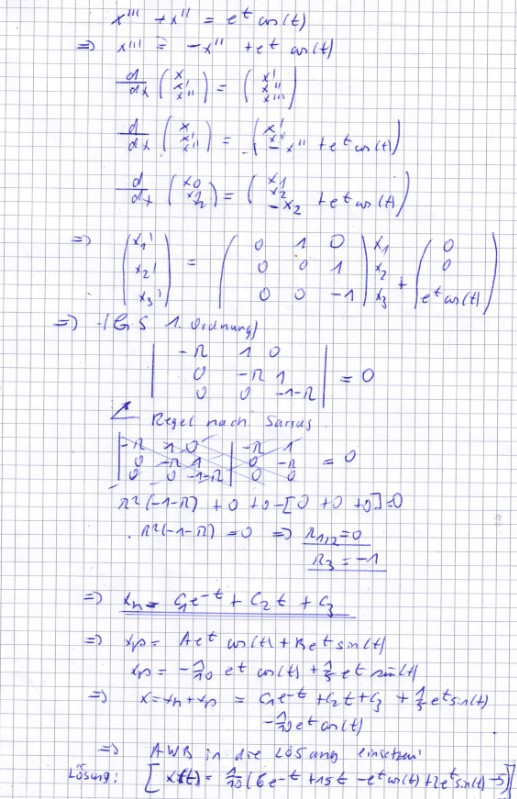 x''' + x'' = e^t cos(t)
=> x''' = -x'' + e^t cos(t)
d/dx (x x' x'') = (x' x'' x''')
d/dx (x x' x'') = (x' x'' -x'' + e^t cos(t))
d/dx (x0 x1 x2) = (x1 x2 -x2 + e^t cos(t))
=> (x1' x2' x3') =
( 0 1 0 ) x1 ( 0 )
( 0 0 1 ) x2 + ( 0 )
( 0 0 -1 ) x3 ( e^t cos(t) )
=> 1. Ordnung)
| -λ 1 0 |
| 0 -λ 1 | = 0
| 0 0 -1-λ |
Regel nach Sarrus
| -λ 1 0 | -λ 1
| 0 -λ 1 | 0 -λ = 0
| 0 0 -1-λ | 0 0
λ²(-1-λ) + 0 + 0 - [0 + 0 + 0] = 0
λ²(-1-λ) = 0 => λ1,2 = 0
λ3 = -1
=> xh = C1e^-t + C2t + C3
=> xp = Ae^t cos(t) + Be^t sin(t)
xp = -1/10 e^t cos(t) + 1/5 e^t sin(t)
=> x = xh + xp = C1e^-t + C2t + C3 + 1/5 e^t sin(t)
-1/10 e^t cos(t)
=> AWB in die Lösung einsetzen
Lösung: [x(t) = 1/10 (6e^-t + 15t - e^t cos(t) + 2e^t sin(t) - 5)]